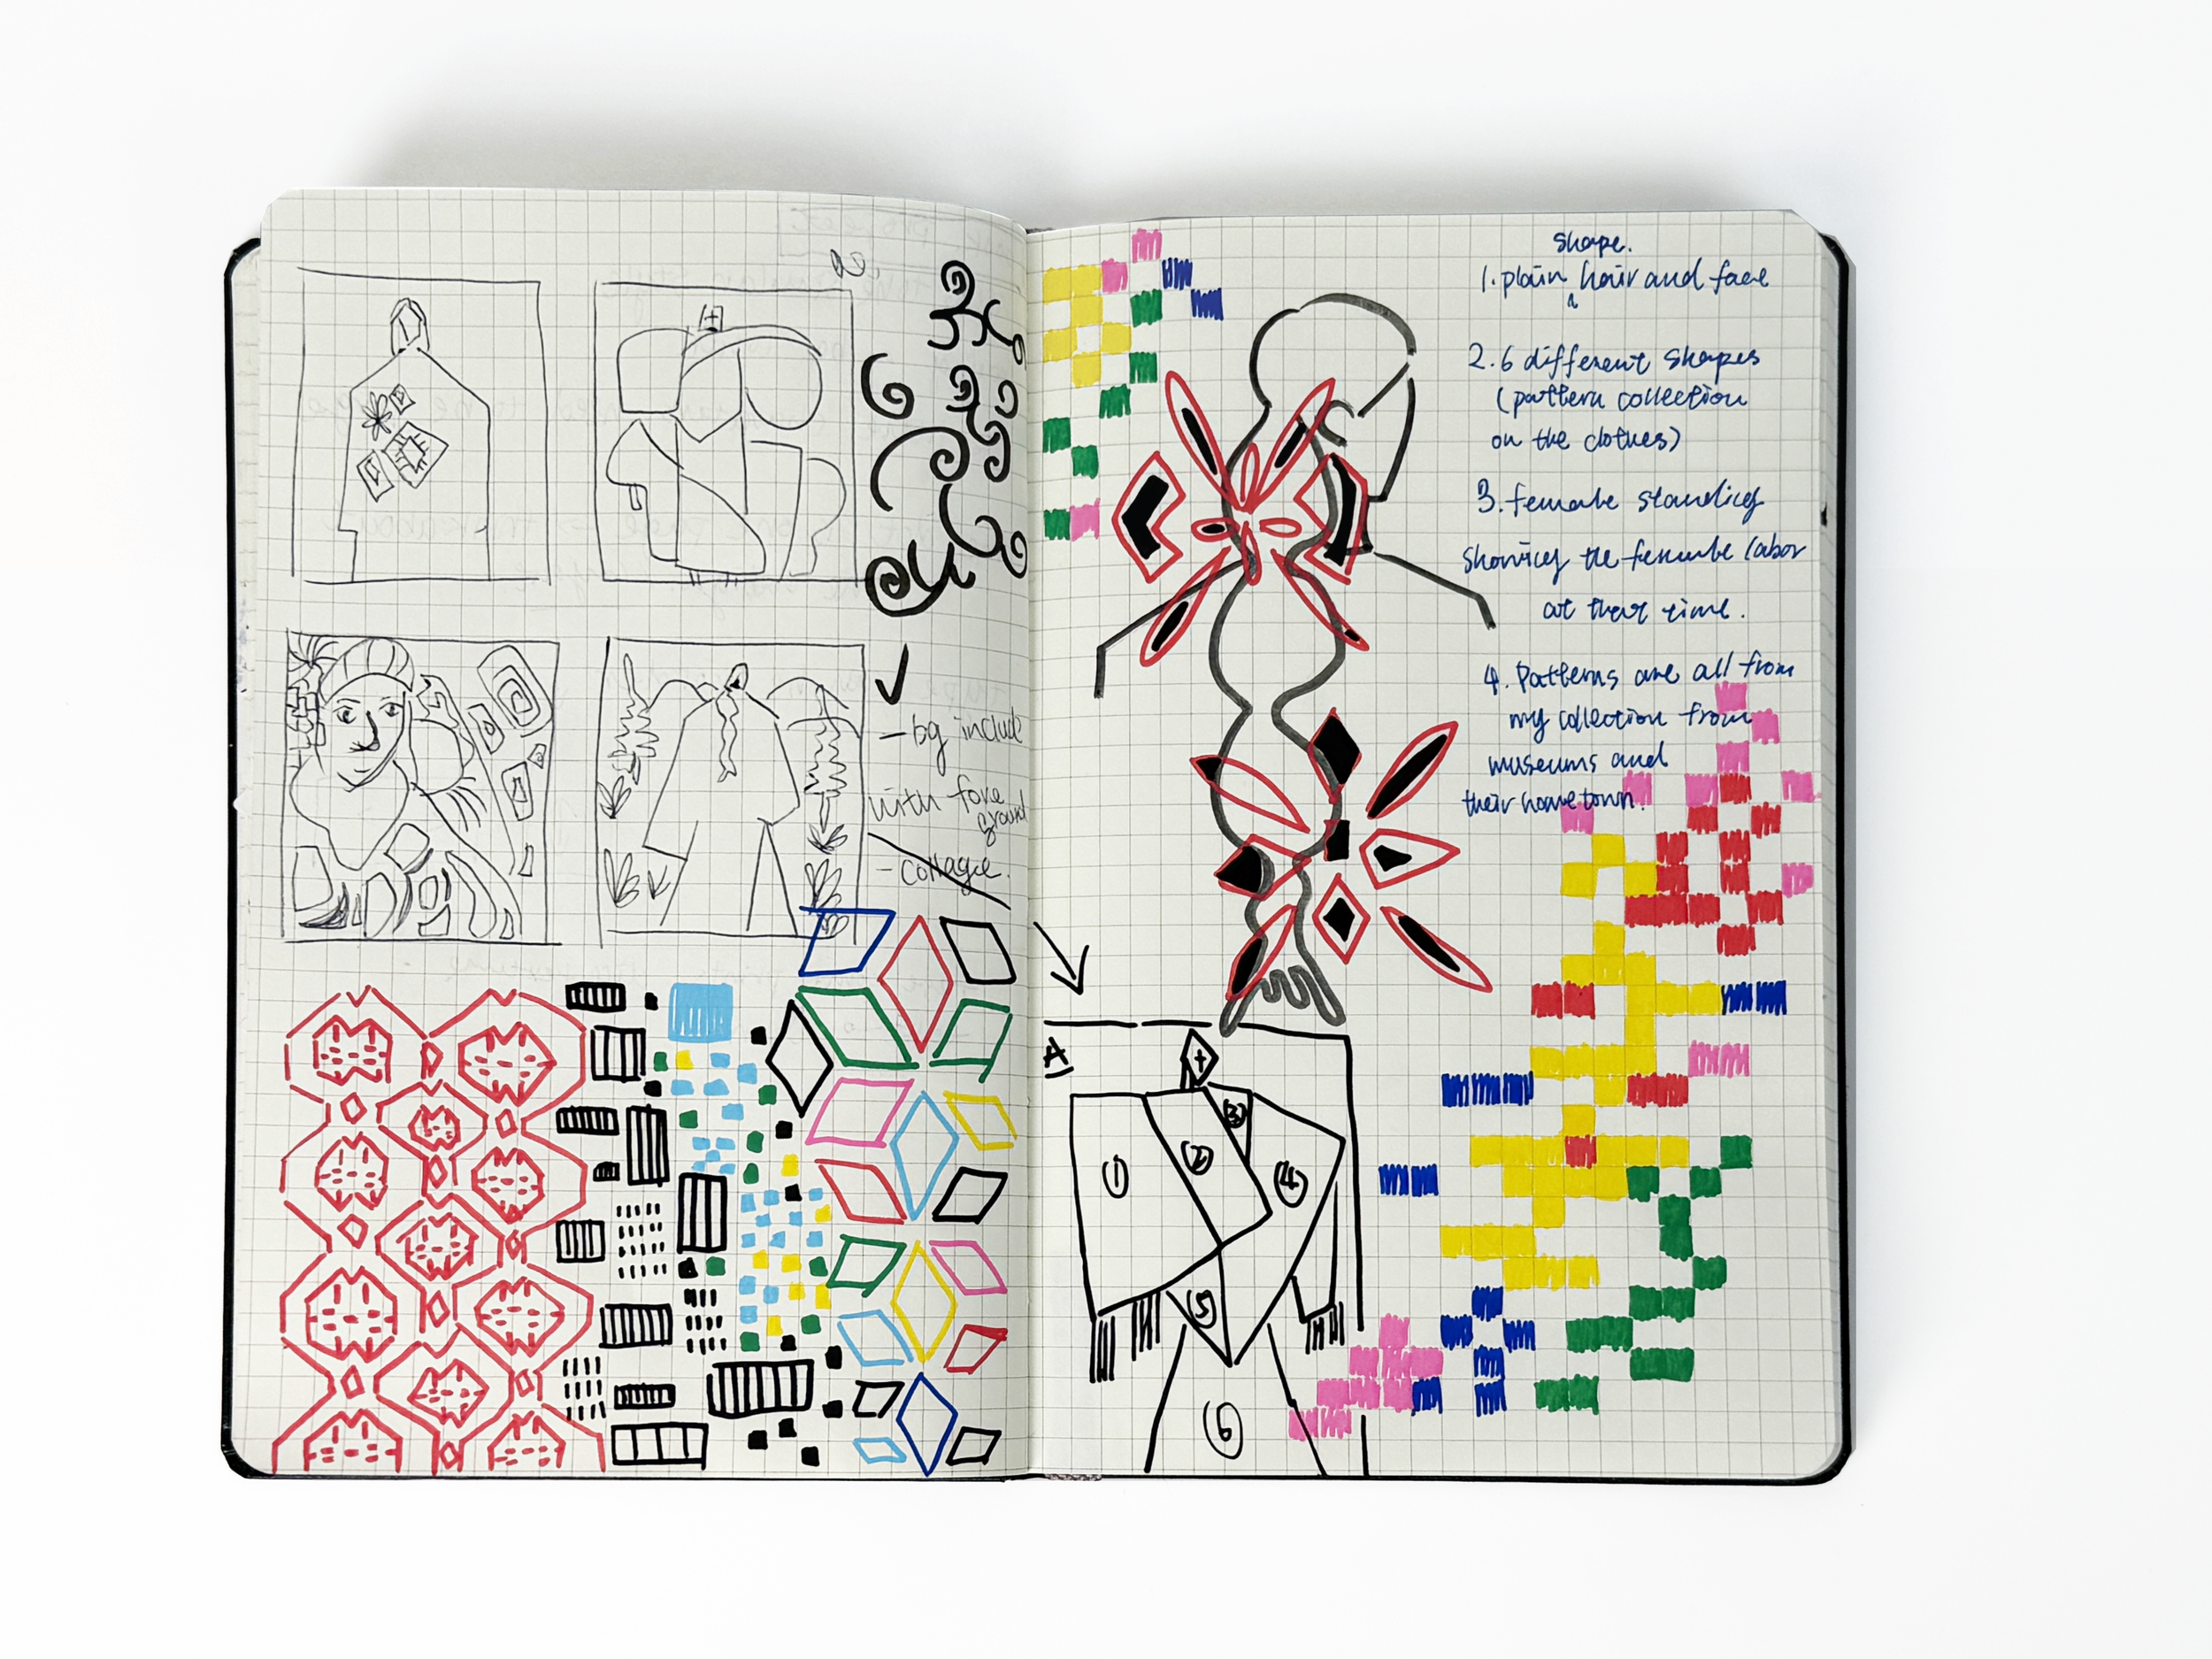 - bg include
with fore
ground
- collage.
shape.
1. plain hair and face
2. 6 different shapes
(pattern collection
on the clothes)
3. female standing
showing the female labor
at that time.
4. Patterns are all from
my collection from
museums and
their hometown.
A
1
2
3
4
5
6